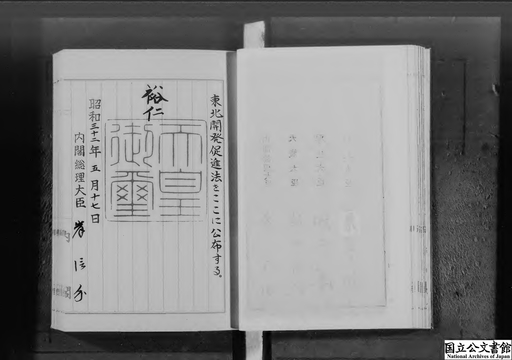 東北開発促進法をここに公布する。
裕仁
天皇
御璽
昭和三十二年五月十七日
内閣総理大臣 岸信介
国立公文書館
National Archives of Japan